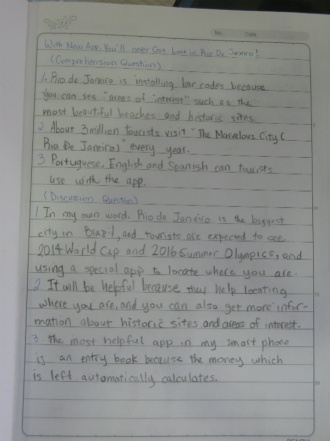 With New App, You'll never Get Lost in Rio De Janeiro!
(Comprehension Question)
1. Rio de Janeiro is installing bar codes because
you can see "areas of interest" such as the
most beautiful beaches and historic sites.
2. About 3 million tourists visit "The Marvelous City (
Rio De Janeiro)" every year.
3. Portuguese, English and Spanish can tourists
use with the app.
(Discussion Question)
1. In my own word, Rio de Janeiro is the biggest
city in Brazil, and tourists are expected to see
2014 World Cup and 2016 Summer Olympics, and
using a special app to locate where you are.
2. It will be helpful because they help locating
where you are, and you can also get more infor-
mation about historic sites and areas of interest.
3. the most helpful app in my smart phone
is an entry book because the money which
is left automatically calculates.